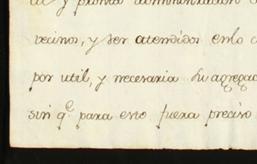 de y pronta administracion d
vecinos, y ser atendidos en lo c
por util, y necesaria su agregac
sin q.e para esto fuera preciso